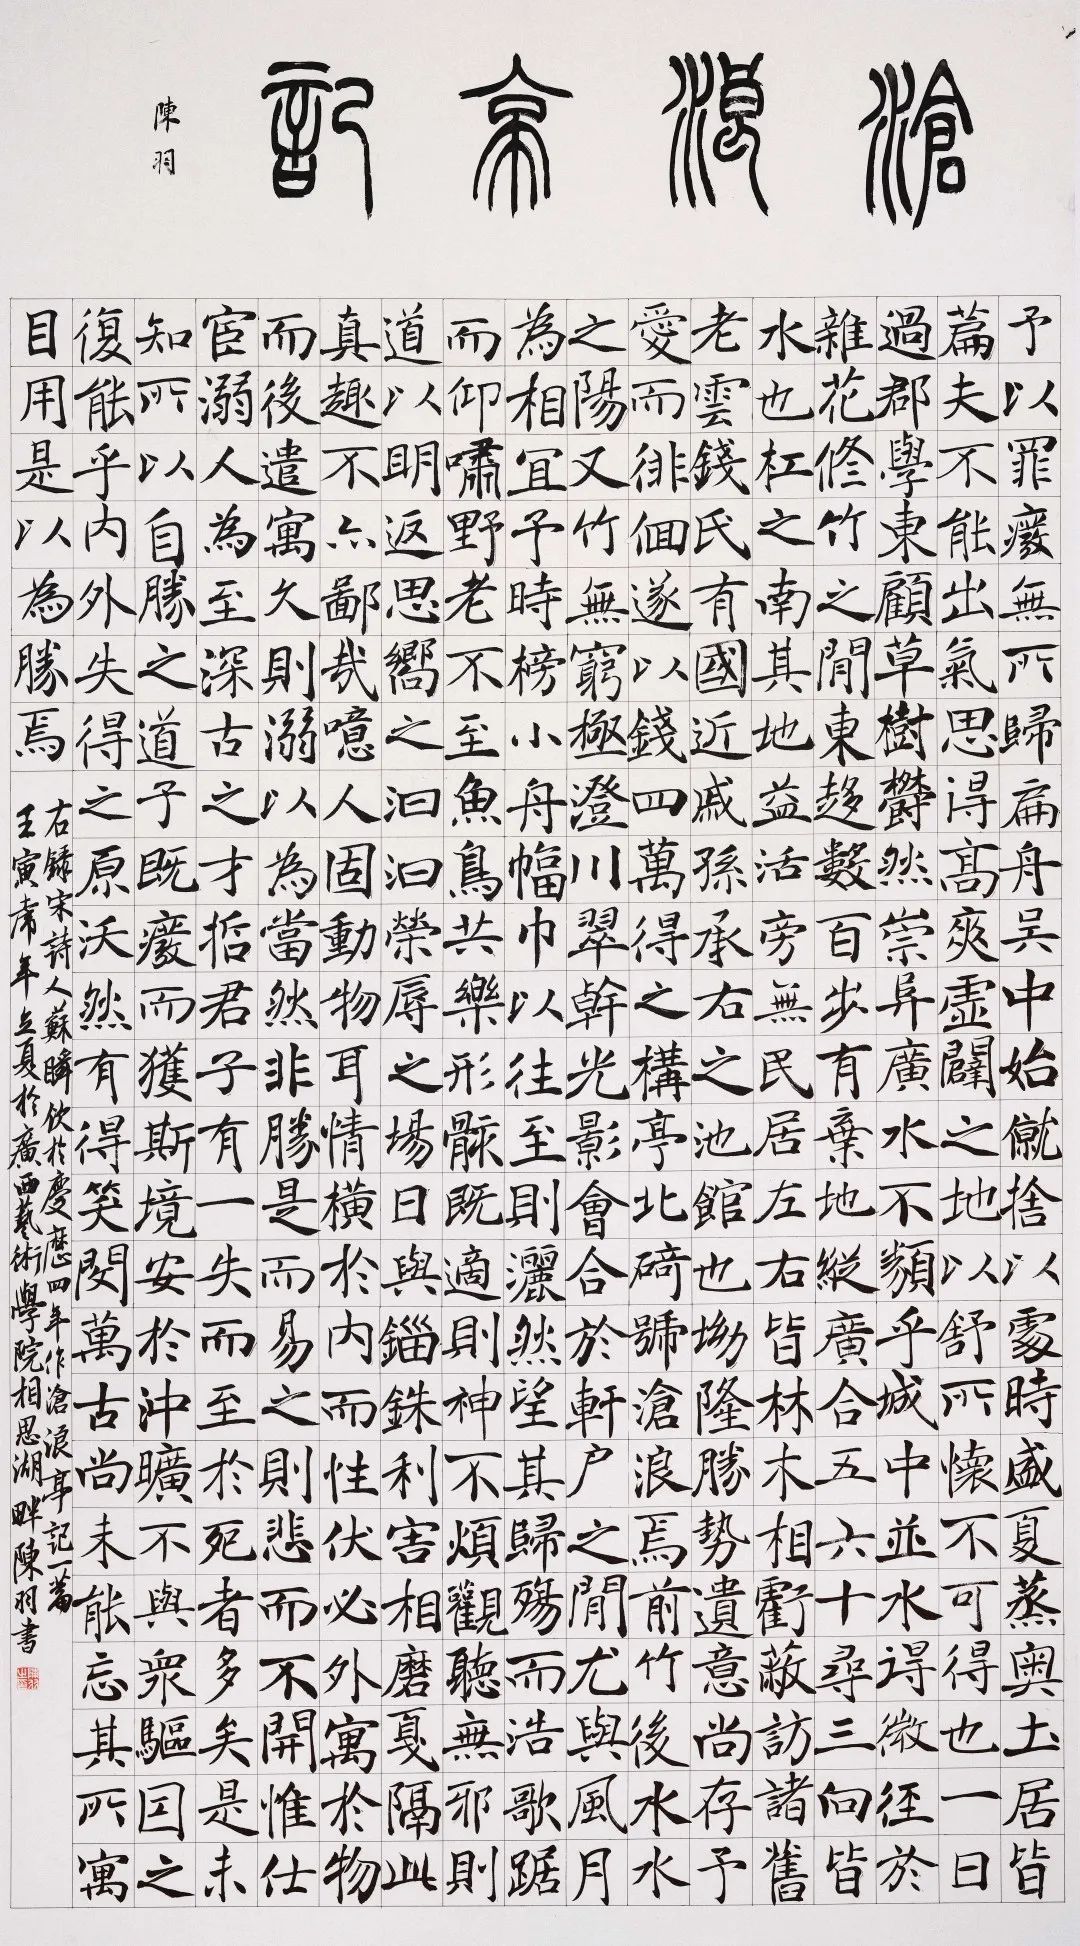 滄浪亭記
陳羽
予以罪癈無所歸扁舟吳中始僦捨以處時盛夏蒸奧土居皆
篇夫不能出氣思得高爽虛闢之地以舒所懷不可得也一日
過郡學東顧草樹欝然崇阜廣水不類乎城中並水得微徑於
雜花修竹之間東趍數百步有棄地縱廣合五六十尋三向皆
水也杠之南其地益活旁無民居左右皆林木相虧蔽訪諸舊
老雲錢氏有國近戚孫承右之池館也坳隆勝勢遺意尚存予
愛而徘佪遂以錢四萬得之構亭北碕號滄浪焉前竹後水水
之陽又竹無窮極澄川翠幹光影會合於軒户之間尤與風月
為相宜予時榜小舟幅巾以往至則灑然望其歸殤而浩歌踞
而仰嘯野老不至魚鳥共樂形骸既適則神不煩觀聽無邪則
道以明返思嚮之汩汩榮辱之場日與錙銖利害相磨戛隔此
真趣不亦鄙哉噫人固動物耳情橫於內而性伏必外寓於物
而後遣寓久則溺以為當然非勝是而易之則悲而不開惟仕
宦溺人為至深古之才哲君子有一失而至於死者多矣是未
知所以自勝之道予既癈而獲斯境安於沖曠不與眾驅因之
復能乎內外失得之原沃然有得笑閔萬古尚未能忘其所寓
目用是以為勝焉
右錄宋詩人蘇瞬欽於慶曆四年作滄浪亭記一篇
壬寅虎年立夏於廣西藝術學院相思湖畔陳羽書